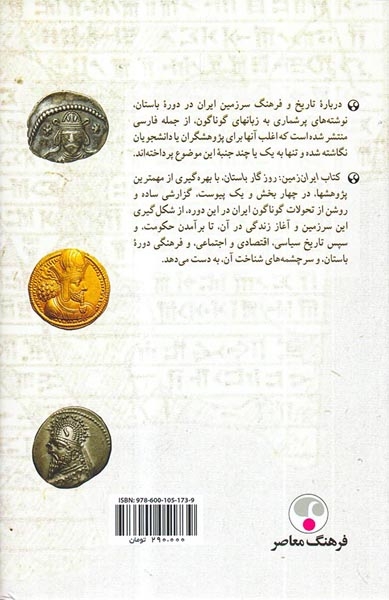 دربارهٔ تاریخ و فرهنگ سرزمین ایران در دورهٔ باستان،
نوشته‌های پرشماری به زبانهای گوناگون، از جمله فارسی
منتشر شده است که اغلب آنها برای پژوهشگران یا دانشجویان
نگاشته شده و تنها به یک یا چند جنبهٔ این موضوع پرداخته‌اند.
کتاب ایران‌زمین: روزگار باستان، با بهره‌گیری از مهمترین
پژوهشها، در چهار بخش و یک پیوست، گزارشی ساده و
روشن از تحولات گوناگون ایران در این دوره، از شکل‌گیری
این سرزمین و آغاز زندگی در آن، تا برآمدن حکومت، و
سپس تاریخ سیاسی، اقتصادی و اجتماعی، و فرهنگی دورهٔ
باستان، و سرچشمه‌های شناخت آن، به دست می‌دهد.
ISBN: 978-600-105-173-9
۲۹۰،۰۰۰ تومان
فرهنگ معاصر